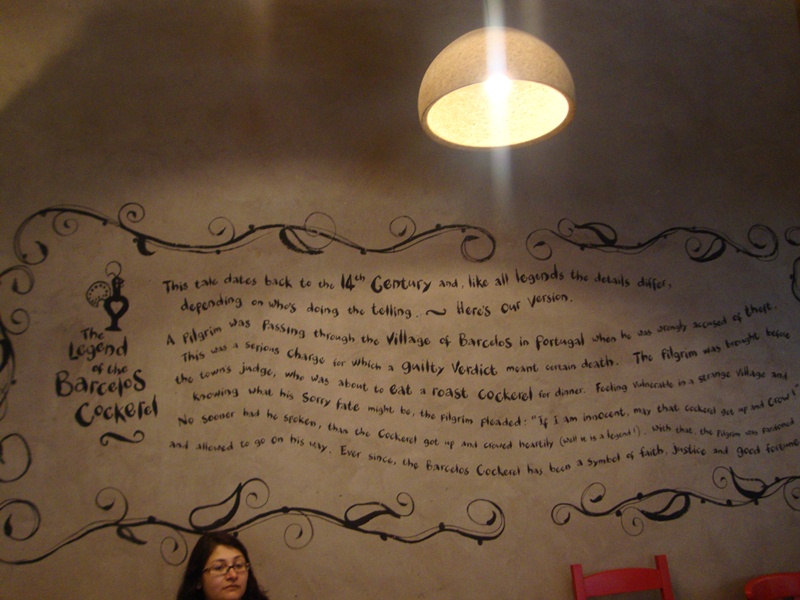 The
Legend
of the
Barcelos
Cockerel
This tale dates back to the 14th Century and, like all legends the details differ,
depending on who's doing the telling. ~ Here's our version.
A Pilgrim was passing through the Village of Barcelos in Portugal when he was wrongly accused of theft.
This was a serious Charge for which a guilty Verdict meant certain death. The Pilgrim was brought before
the town's judge, who was about to eat a roast cockerel for dinner. Feeling vulnerable in a strange village and
knowing what his Sorry Fate might be, the pilgrim pleaded: "If I am innocent, may that cockerel get up and Crow!"
No sooner had he spoken, than the Cockerel got up and crowed heartily (well it is a legend!). With that, the Pilgrim was pardoned
and allowed to go on his way. Ever since, the Barcelos Cockerel has been a symbol of faith, Justice and good fortune